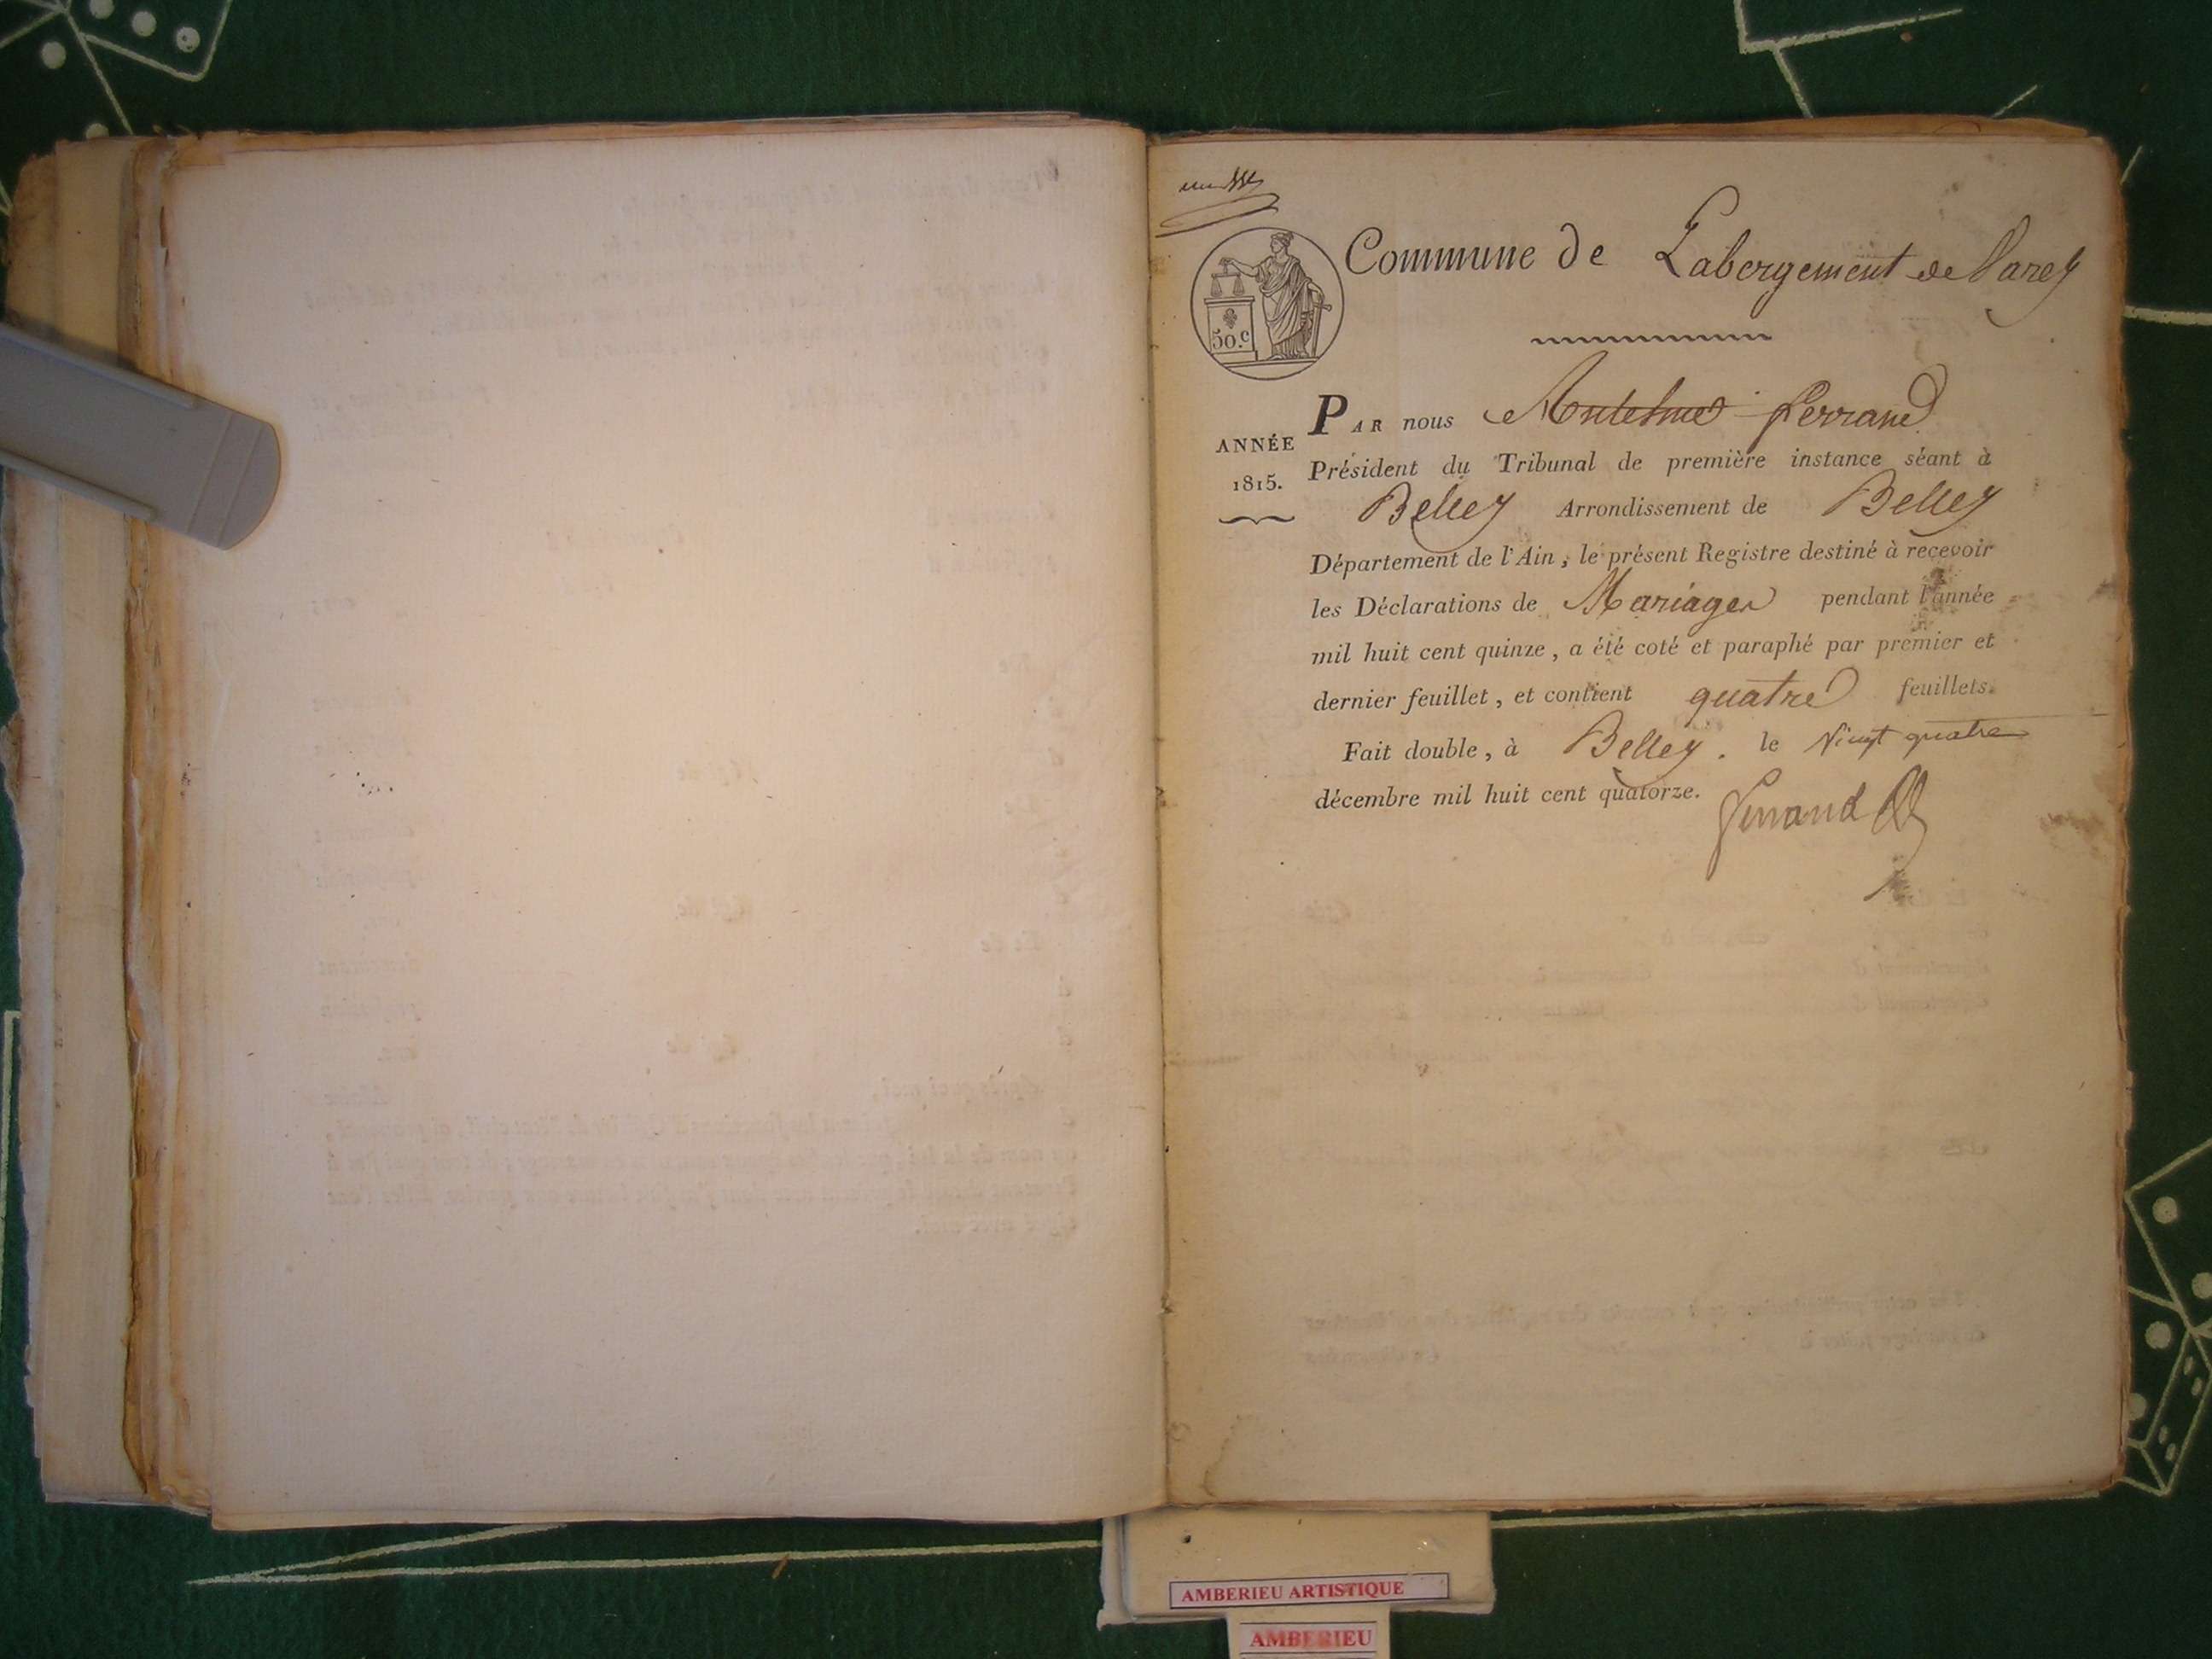 Commune de Labergement de Varey
50.c
PAR nous Antelme ferrand
ANNÉE
1815.
Président du Tribunal de première instance séant à
Belley Arrondissement de Belley
Département de l'Ain, le présent Registre destiné à recevoir
les Déclarations de Mariages pendant l'année
mil huit cent quinze, a été coté et paraphé par premier et
dernier feuillet, et contient quatre feuillets.
Fait double, à Belley. le Vingt quatre
décembre mil huit cent quatorze.
ferrand
AMBERIEU ARTISTIQUE
AMBERIEU